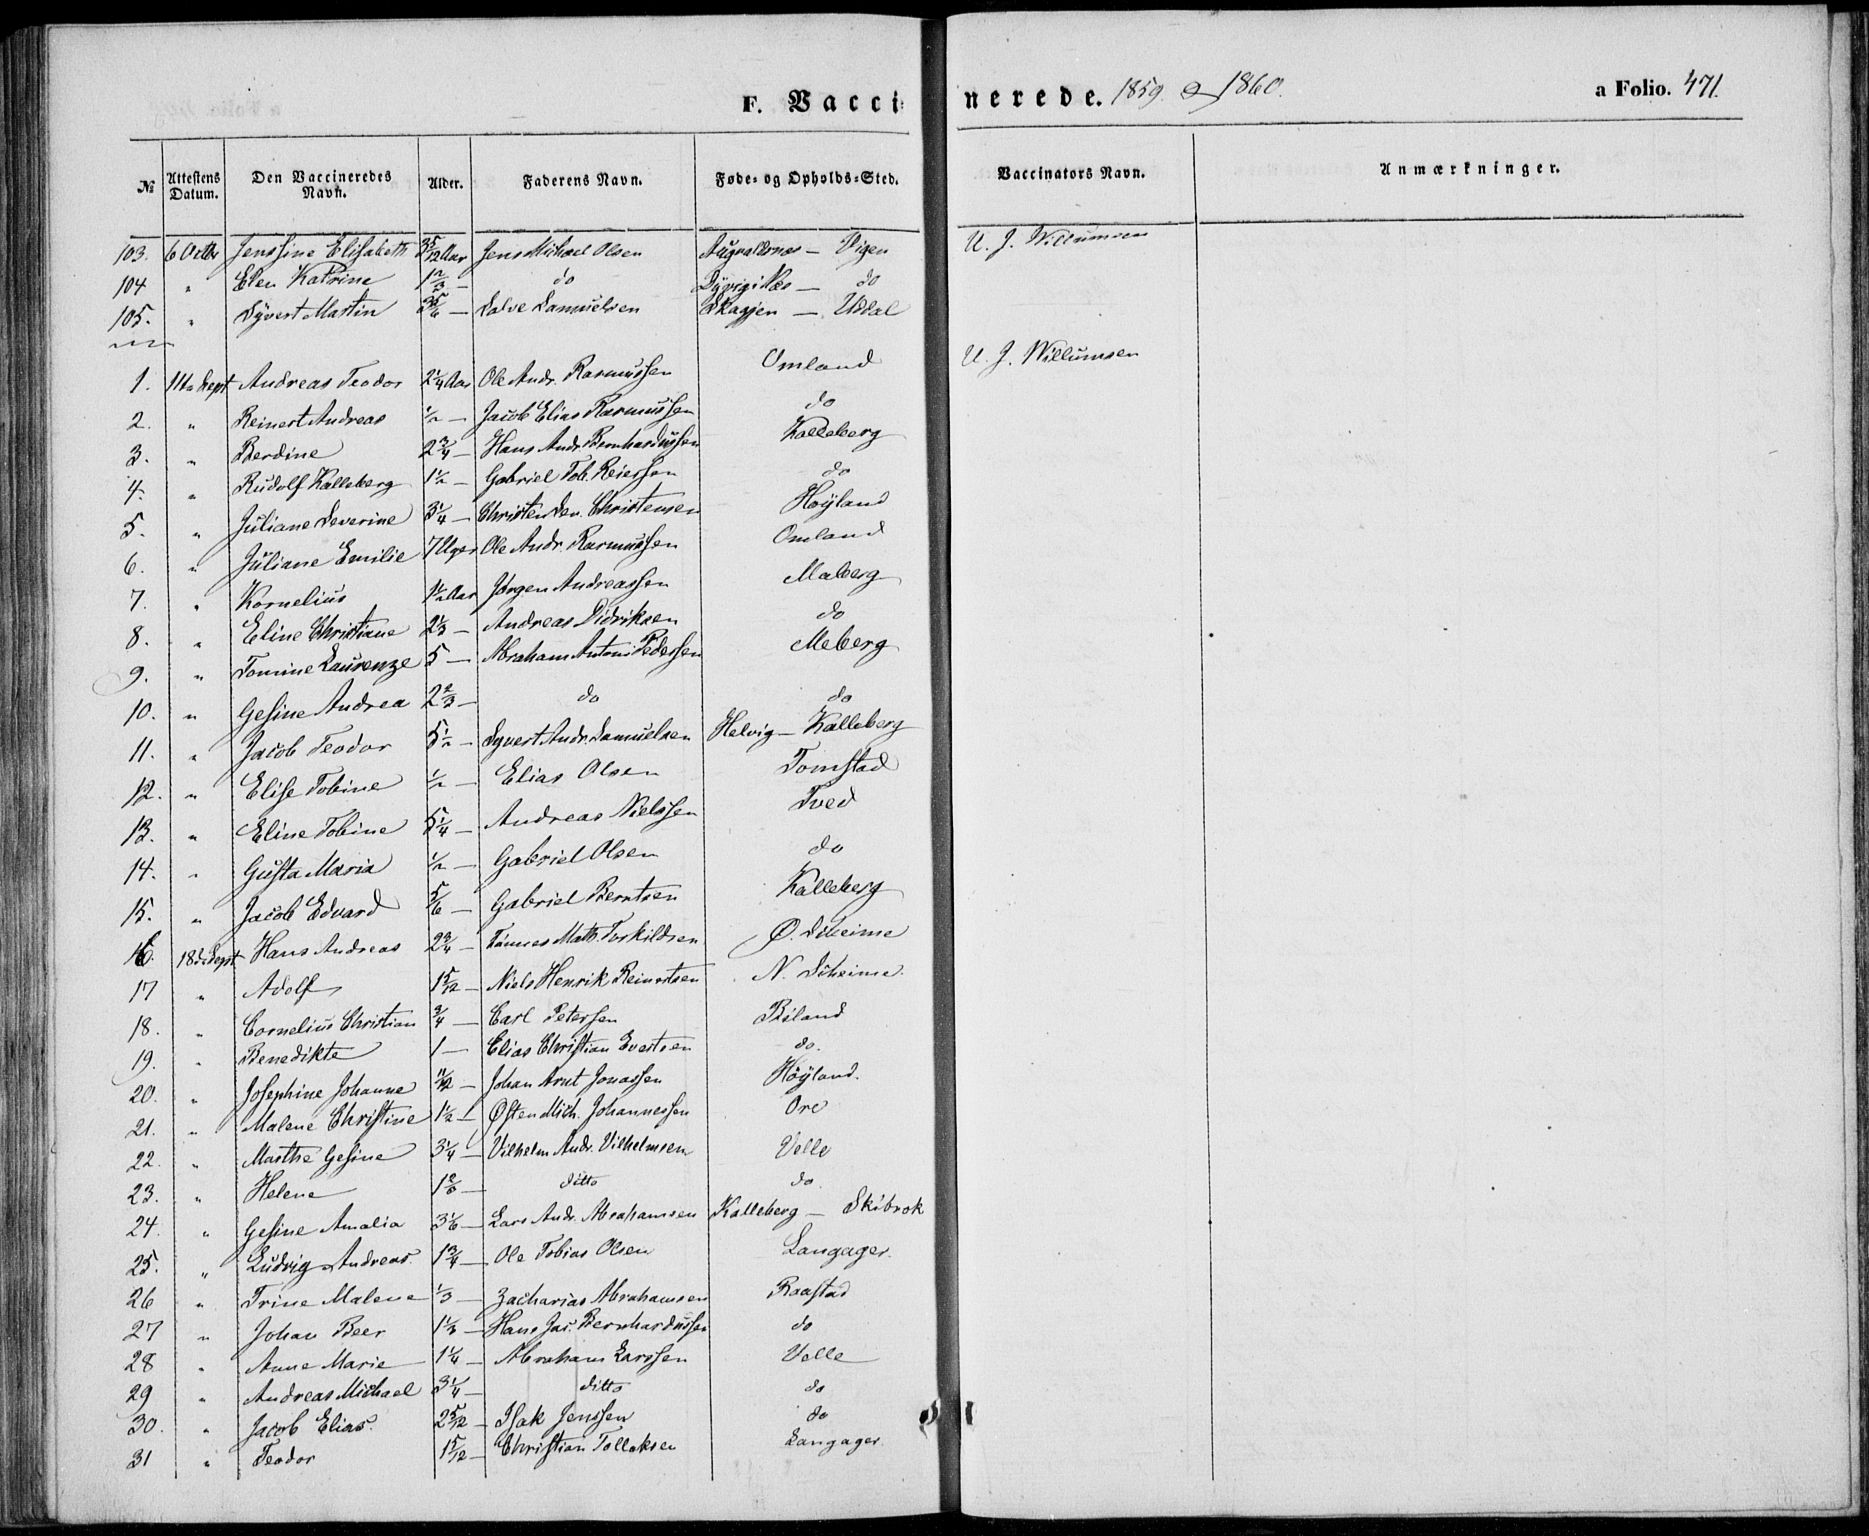 F. Vaccinerede. 1859 & 1860. a Folio. 471.
№ Attestens Datum. Den Vaccineredes Navn. Alder. Faderens Navn. Føde- og Opholds-Sted. Vaccinators Navn. Anmærkninger.
103. 6 Octbr Jenssine Elisabeth 3 5/12 Aar Jens Michael Olsen Augnaldsnes — Vigen U. J. Willumsen
104 " Elen Katrine 1 2/3 — do — do
105. " Syvert Martin 3 5/6 — Salve Samuelsen Skagjen — Uddal
1. 11te Sept Andreas Teodor 2 1/4 Aar Ole Andr. Rasmussen Omland U. J. Willumsen
2. " Reinert Andreas 1/2 — Jacob Elias Rasmussen do
3. " Berdine 2 3/4 — Hans Andr. Bernhardussen Kalleberg
4. " Rudolf Kalleberg 1 1/2 — Gabriel Tob. Reiersen do
5. " Juliane Severine 3 1/4 — Christen Sev. Christensen Høyland
6. " Juliane Emilie 7 Uger Ole Andr. Rasmussen Omland
7. " Kornelius 1 1/2 Aar Jørgen Andreassen Maberg
8. " Eline Christiane 2 1/3 — Andreas Didriksen do
9. " Tomine Laurenze 5 — Abraham Antoni Pedersen Meberg
10. " Gesine Andrea 2 2/3 — do do
11. " Jacob Teodor 5 1/2 — Syvert Andr. Samuelsen Helvig — Kalleberg
12. " Elise Tobine 1/2 — Elias Olsen Tomstad
13. " Eline Tobine 5 1/4 — Andreas Nielssen Tved
14. " Gusta Maria 1/2 — Gabriel Olsen do
15. " Jacob Edvard 5/6 — Gabriel Berntsen Kalleberg
16. 18de Sept Hans Andreas 2 3/4 — Tønnes Math. Torkildsen Ø. Diheime
17 " Adolf 1 5/12 — Niels Henrik Reinertsen N. Diheime.
18. " Cornelius Christian 3/4 — Carl Petersen Biland
19. " Benedikte 1 — Elias Christian Evertsen do.
20. " Josephine Johanne 11/12 — Johan Arnt Jonassen Høyland.
21. " Malene Christine 1 1/2 — Østen Mich. Johannessen Ore
22. " Marthe Gesine 3 1/4 — Vilhelm Andr. Vilhelmsen Velle
23. " Helene — ditto do.
24. " Gesine Amalia 3 1/6 — Lars Andr. Abrahamsen Kalleberg — Skibrok
25. " Ludvig Andreas. 1 3/4 — Ole Tobias Olsen Langager.
26 " Trine Malene 1/3 — Zacharias Abrahamsen Raastad
27 " Johan Beer 1 1/3 — Hans Jac. Bernhardussen do
28 " Anne Marie 1 1/4 — Abraham Larssen Velle
29 " Andreas Michael 3 1/4 — ditto do
30. " Jacob Elias. 2 5/12 — Isak Jenssen do
31 " Teodor 1 5/12 — Christian Tollaksen Langager.